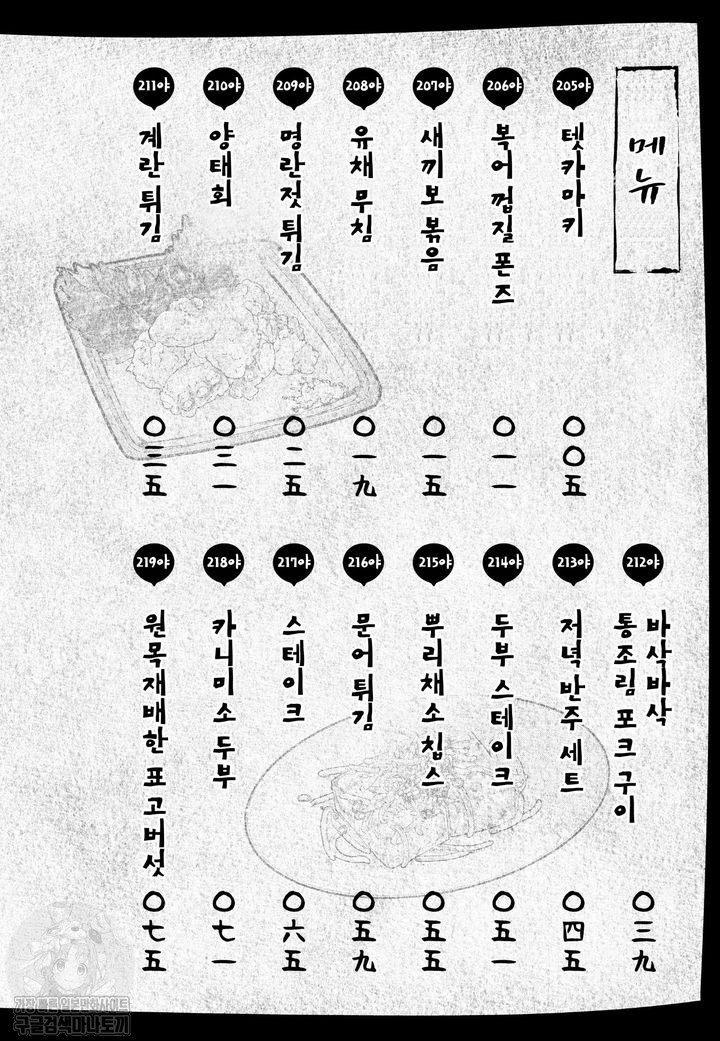 메뉴
205야
텟카마키
〇〇五
206야
복어 껍질 폰즈
〇一一
207야
새끼보 볶음
〇一五
208야
유채 무침
〇一九
209야
명란젓 튀김
〇二五
210야
양태회
〇三一
211야
계란 튀김
〇三五
212야
바삭바삭
통조림 포크 구이
〇三九
213야
저녁 반주 세트
〇四五
214야
두부 스테이크
〇五一
215야
뿌리채소 칩스
〇五五
216야
문어 튀김
〇五九
217야
스테이크
〇六五
218야
카니미소 두부
〇七一
219야
원목재배한 표고버섯
〇七五
가장 빠른 일본만화사이트
구글검색마나토끼